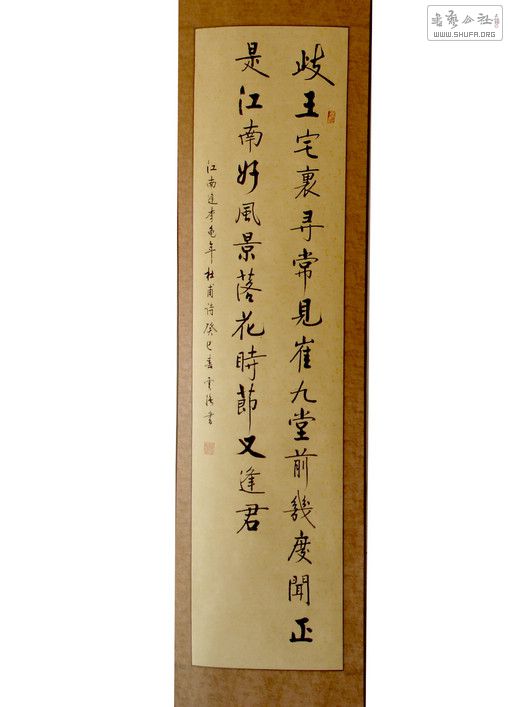 歧王宅裏尋常見崔九堂前幾度聞正
是江南好風景落花時節又逢君
江南逢李龜年杜甫詩癸巳春
書藝公社
WWW.SHUFA.ORG